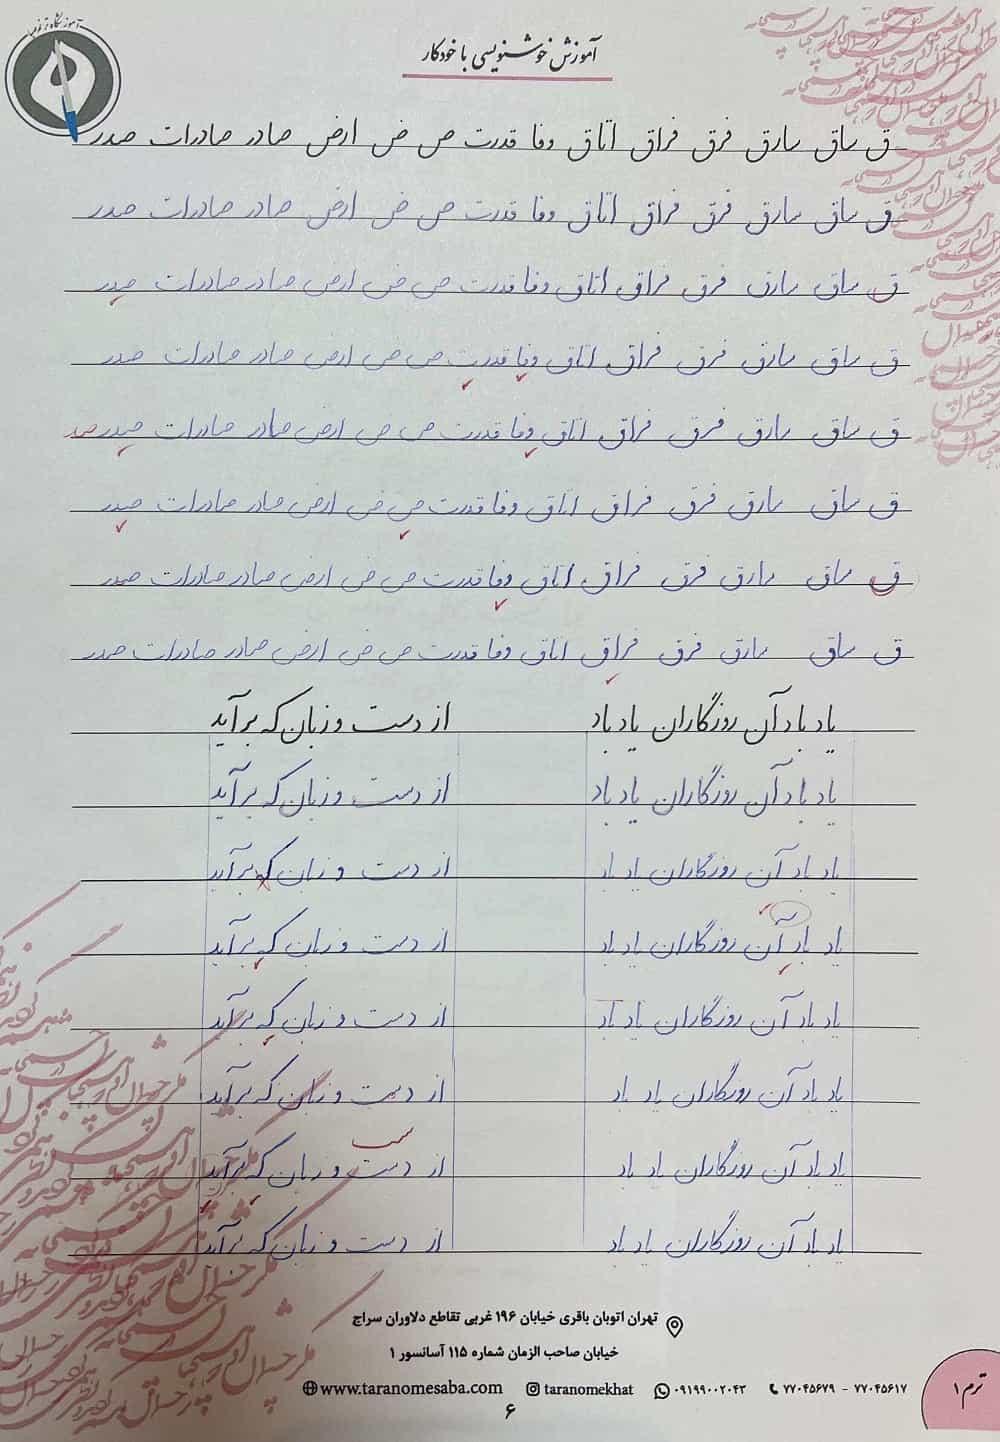 آموزش خوشنویسی با خودکار
ق ساق سارق فرق فراق اتاق وفا قدرت ص ض ارض صادر صادرات صدر
ق ساق سارق فرق فراق اتاق وفا قدرت ص ض ارض صادر صادرات صدر
ق ساق سارق فرق فراق اتاق وفا قدرت ص ض ارض صادر صادرات صدر
ق ساق سارق فرق فراق اتاق وفا قدرت ص ض ارض صادر صادرات صدر
ق ساق سارق فرق فراق اتاق وفا قدرت ص ض ارض صادر صادرات صدر صد
ق ساق سارق فرق فراق اتاق وفا قدرت ص ض ارض صادر صادرات صدر
ق ساق سارق فرق فراق اتاق وفا قدرت ص ض ارض صادر صادرات صدر
ق ساق سارق فرق فراق اتاق وفا قدرت ص ض ارض صادر صادرات صدر
یاد باد آن روزگاران یاد باد از دست و زبان که برآید
یاد باد آن روزگاران یاد باد از دست و زبان که برآید
یاد باد آن روزگاران یاد باد از دست و زبان که برآید
یاد باد آن روزگاران یاد باد از دست و زبان که برآید
یاد باد آن روزگاران یاد باد از دست و زبان که برآید
یاد باد آن روزگاران یاد باد از دست و زبان که برآید
ست
یاد باد آن روزگاران یاد باد از دست و زبان که برآید
یاد باد آن روزگاران یاد باد از دست و زبان که برآید
تهران اتوبان باقری خیابان ۱۹۶ غربی تقاطع دلاوران سراج
خیابان صاحب الزمان شماره ۱۱۵ آسانسور ۱
۷۷۰۴۵۶۷۹ - ۷۷۰۴۵۶۱۷ ۰۹۱۹۹۰۰۲۰۴۳ taranomekhat www.taranomesaba.com
ترم ۱
۶